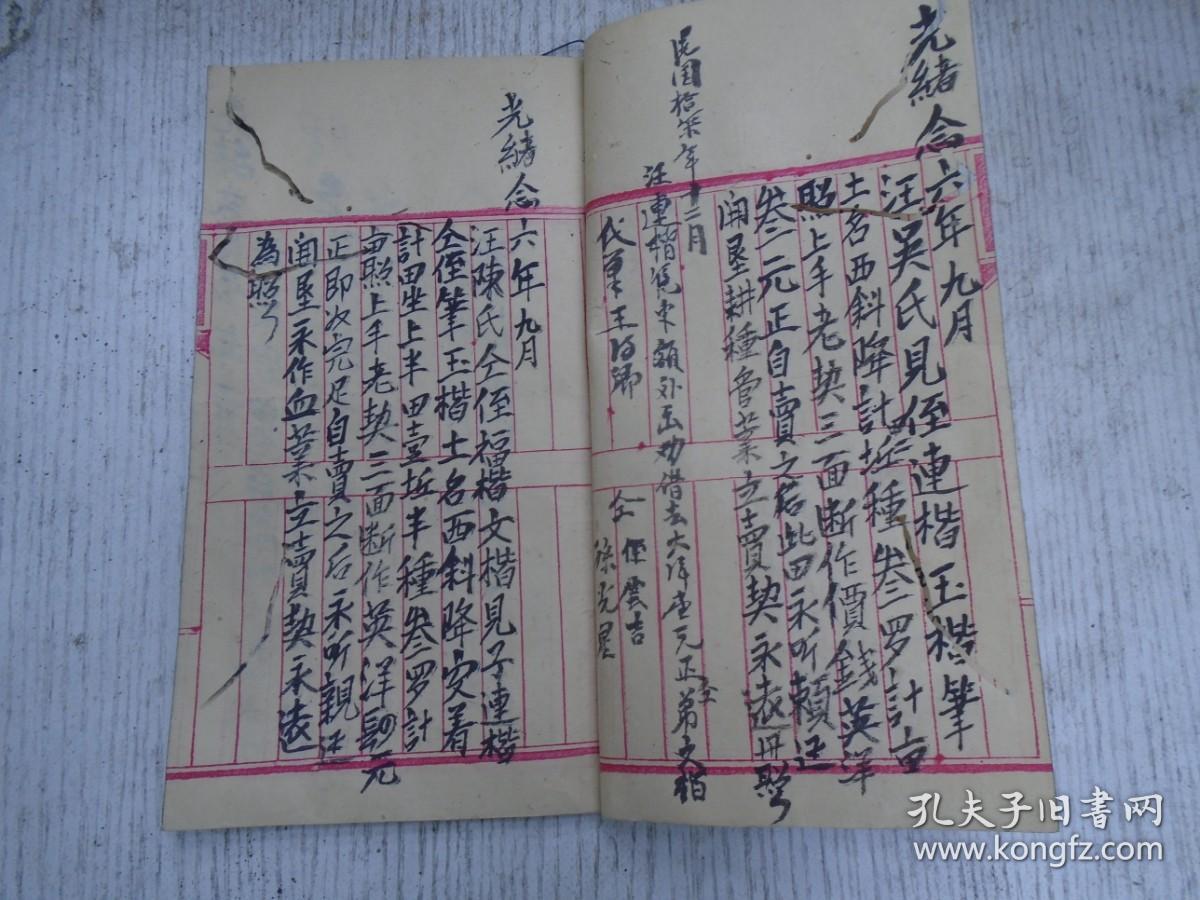 光緒念六年九月
汪吴氏見侄連楷玉楷筆
土名西斜降計坵種叁罗計亩
照上手老契三面断作價錢英洋
叁元正自賣之后此田永听賴边
開垦耕種管業立賣契永遠用照
民国拾柒年十二月
汪連楷凴中額外面劝借去大洋壹元正弟文楷
仝 侄雲吉
徐光星
代筆王
光緒念六年九月
汪陳氏仝侄福楷文楷見子連楷
仝侄筆玉楷土名西斜降安着
計田坐上半田壹坵半種叁罗計
亩照上手老契三面断作英洋四元
正即次完足自賣之后永听親边
開垦永作血業立賣契永遠
為照
孔夫子旧书网
www.kongfz.com